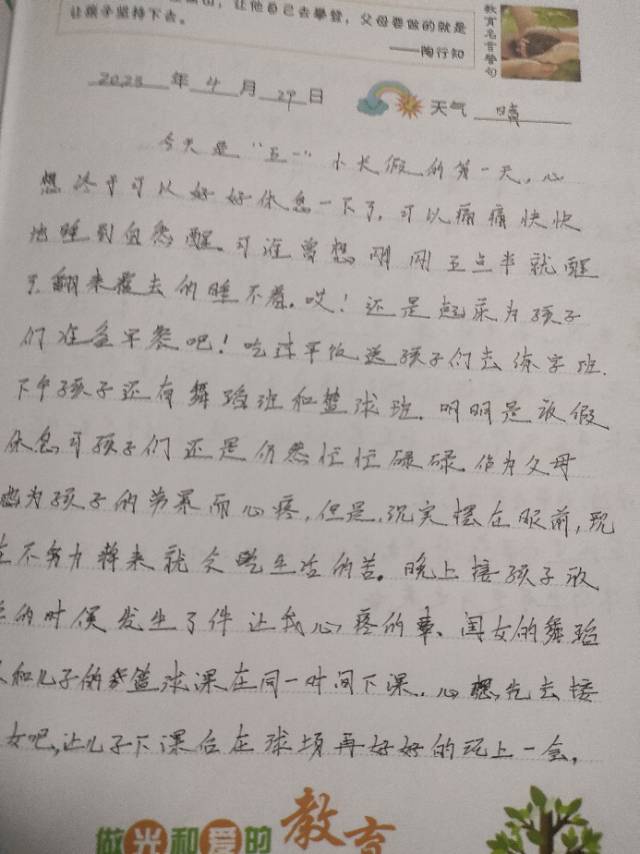 让他自己去攀登，父母要做的就是
让孩子坚持下去。
——陶行知
教育名言警句
2023 年 4 月 29 日 天气 晴
今天是“五一”小长假的第一天，心
想终于可以好好休息一下了，可以痛痛快快
地睡到自然醒。可谁曾想刚刚五点半就醒
了翻来覆去的睡不着。哎！还是起来为孩子
们准备早餐吧！吃过早饭送孩子们去练字班.
下午孩子还有舞蹈班和篮球班. 明明是放假
休息可孩子们还是仍然忙忙碌碌. 作为父母
也为孩子的劳累而心疼，但是，现实摆在眼前，现
在不努力将来就会吃生活的苦。晚上接孩子放
的时侯发生了件让我心疼的事、闺女的舞蹈
和儿子的篮球课在同一时间下课.. 心想，先去接
女吧，让儿子下课后在球场再好好的玩上一会，
做光和爱的教育